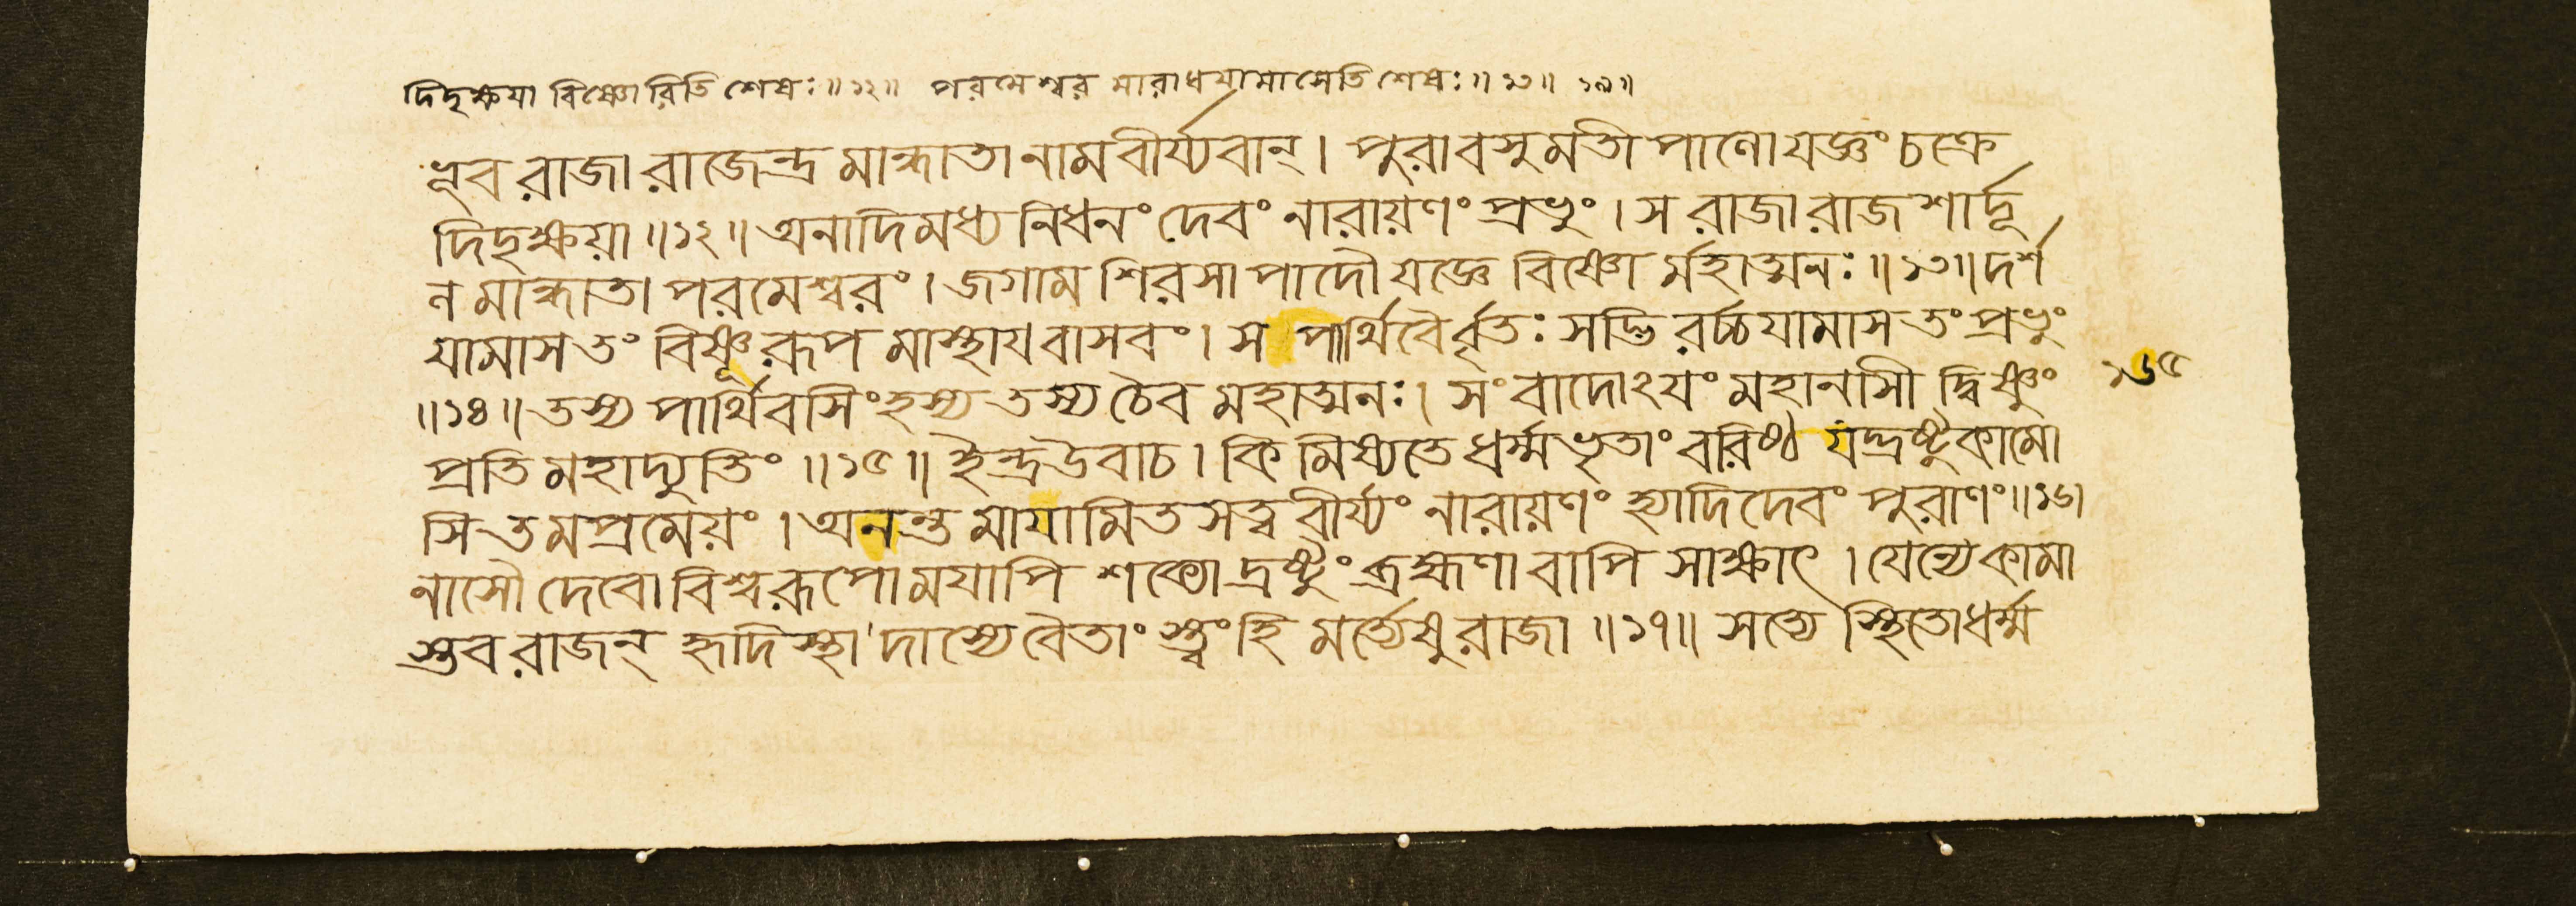 দিদৃক্ষয়া বিষ্ণোরিতি শেষঃ॥১২॥ পরমেশ্বর মারাধযামাসেতি শেষঃ॥১৩॥ ১৪॥
ভূব রাজা রাজেন্দ্র মান্ধাতা নাম বীর্য্যবান্। পুরা বসুমতী পাণো যজ্ঞং চক্রে
দিদৃক্ষয়া॥১২॥ অনাদিমধ্য নিধনং দেবং নারায়ণং প্রভুং। স রাজা রাজ শার্দূ
ন মান্ধাতা পরমেশ্বরং। জগাম শিরসা পাদৌ যজ্ঞে বিষ্ণো র্মহাত্মনঃ॥১৩॥ দর্শ
যামাস তং বিষ্ণূরূপ মাস্থায বাসবং। স পার্থিবৈর্বৃতঃ সদ্ভি রর্চ্চযামাস তং প্রভুং
॥১৪॥ তস্য পার্থিবসিংহস্য তস্য চৈব মহাত্মনঃ। সংবাদোঽযং মহানসী দ্বিষ্ণুং
প্রতি মহাদ্যুতিং॥১৫॥ ইন্দ্রউবাচ। কি মিষ্যতে ধর্ম্মভৃতাং বরিষ্ঠ যদ্দ্রষ্টুকামো
সি তমপ্রমেয়ং। অনন্ত মাযামিত সত্ব বীর্য্যং নারায়ণং হ্যাদিদেবং পুরাণং॥১৬॥
নাসৌ দেবো বিশ্বরূপো মযাপি শক্যো দ্রষ্টুং ব্রহ্মণা বাপি সাক্ষাৎ। যেন্যে কামা
স্তব রাজন্ হৃদিস্থা দাস্যে বৈতাং স্ত্বংহি মর্ত্যেষু রাজা॥১৭॥ সত্যে স্থিতো ধর্ম্ম
১৬৫